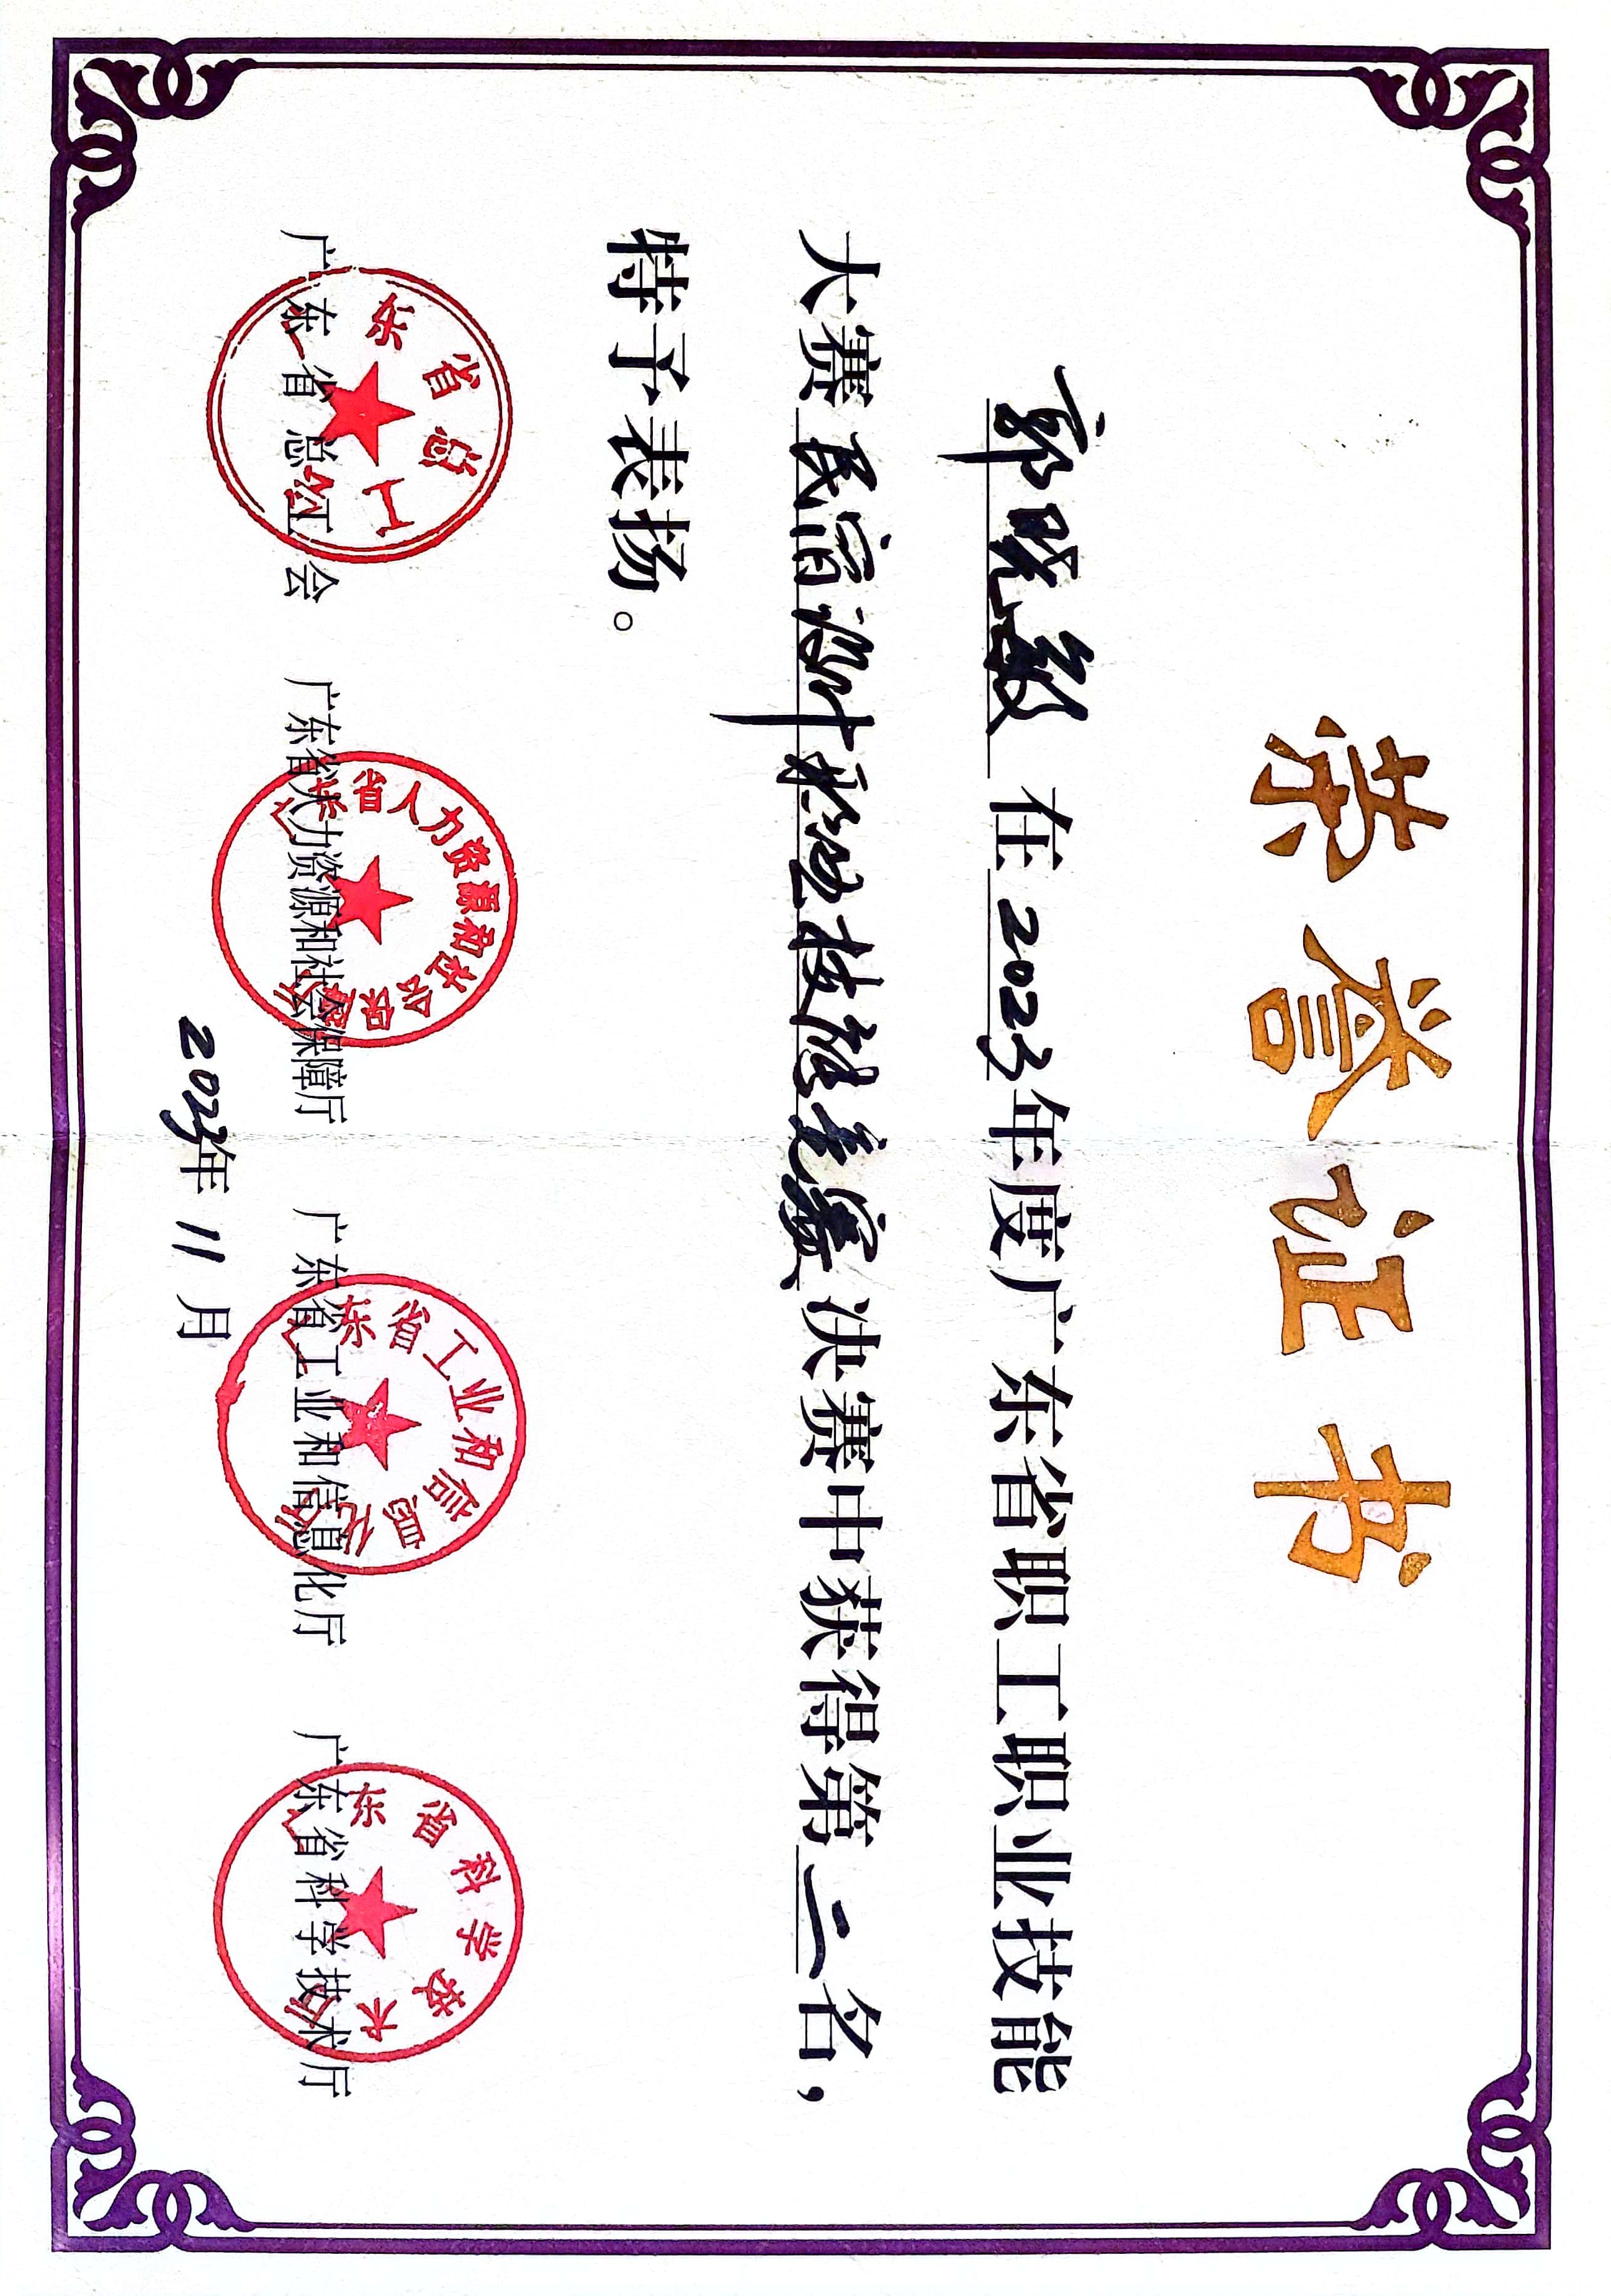 荣誉证书
郭晓 在2023年度广东省职工职业技能
大赛民宿 技能竞赛决赛中获得第二名，
特予表扬。
广东省总工会 广东省人力资源和社会保障厅 广东省工业和信息化厅 广东省科学技术厅
广东省总工会
广东省人力资源和社会保障厅
广东省工业和信息化厅
广东省科学技术厅
2023年11月